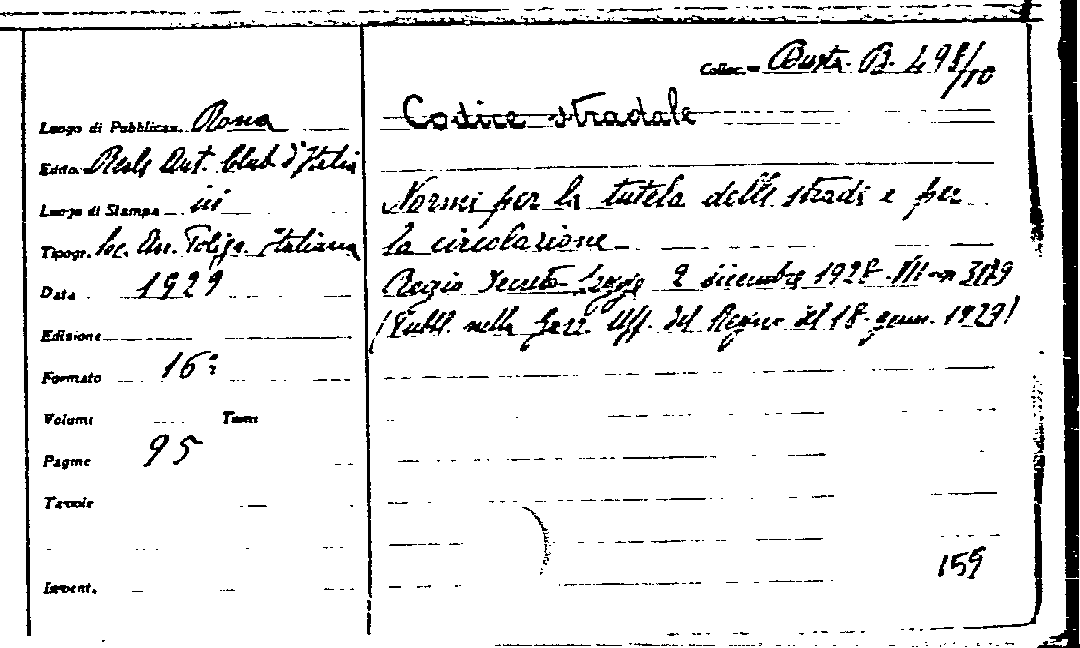 Colloc. Busta. B. 498/10
Luogo di Pubblicaz. Roma
Codice stradale
Editto. Reale Aut. Club d'Italia
Luogo di Stampa ivi
Norme per la tutela delle strade e per
Tipogr. Soc. An. Poligr. Italiana
la circolazione
Data 1929
Regio Decreto-Legge 2 dicembre 1928-VII-n 3179
Edizione
(Pubbl. nella Gazz. Uff. del Regno del 18 genn. 1929)
Formato 16°
Volumi Tomi
Pagine 95
Tavole
159
Invent.